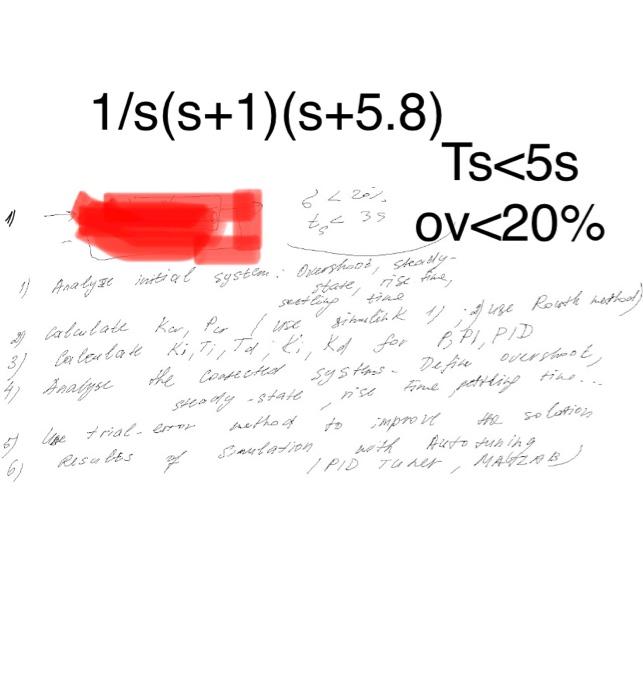 1/s(s+1)(s+5.8)
Ts<5s
ov<20%
1)
σ < 20%
ts < 3s
1) Analyze initial system: Overshoot, steady-
state, rise time,
settling time
2) Calculate Kcr, Pcr / use simulink 1) ; 2) use Routh method)
3) Calculate Ki, Ti, Td; Ki, Kd for P, PI, PID
4) Analyse the corrected systems. Define overshoot,
steady-state, rise time settling time...
5) Use trial-error method to improve the solution
6) Results of simulation with Auto tuning
/ PID Tuner, MATLAB)